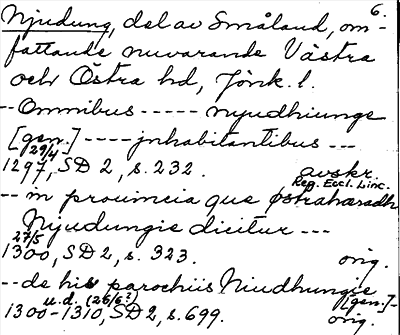 6.
Njudung, del av Småland, om-
fattande nuvarande Västra
och Östra hd, Jönk. l.
-- Omnibus ----- nyudhiunge
[gen.] ---- jnhabitantibus ---
29/4
1297, SD 2, s. 232. avskr.
Reg. Eccl. Linc.
-- in prouincia que østrahæradh
Nyudungie dicitur ---
27/5
1300, SD 2, s. 323. orig.
-- de his parochiis Niudhungie
[gen.] -
u. d. (26/6?)
1300-1310, SD 2, s. 699. orig.